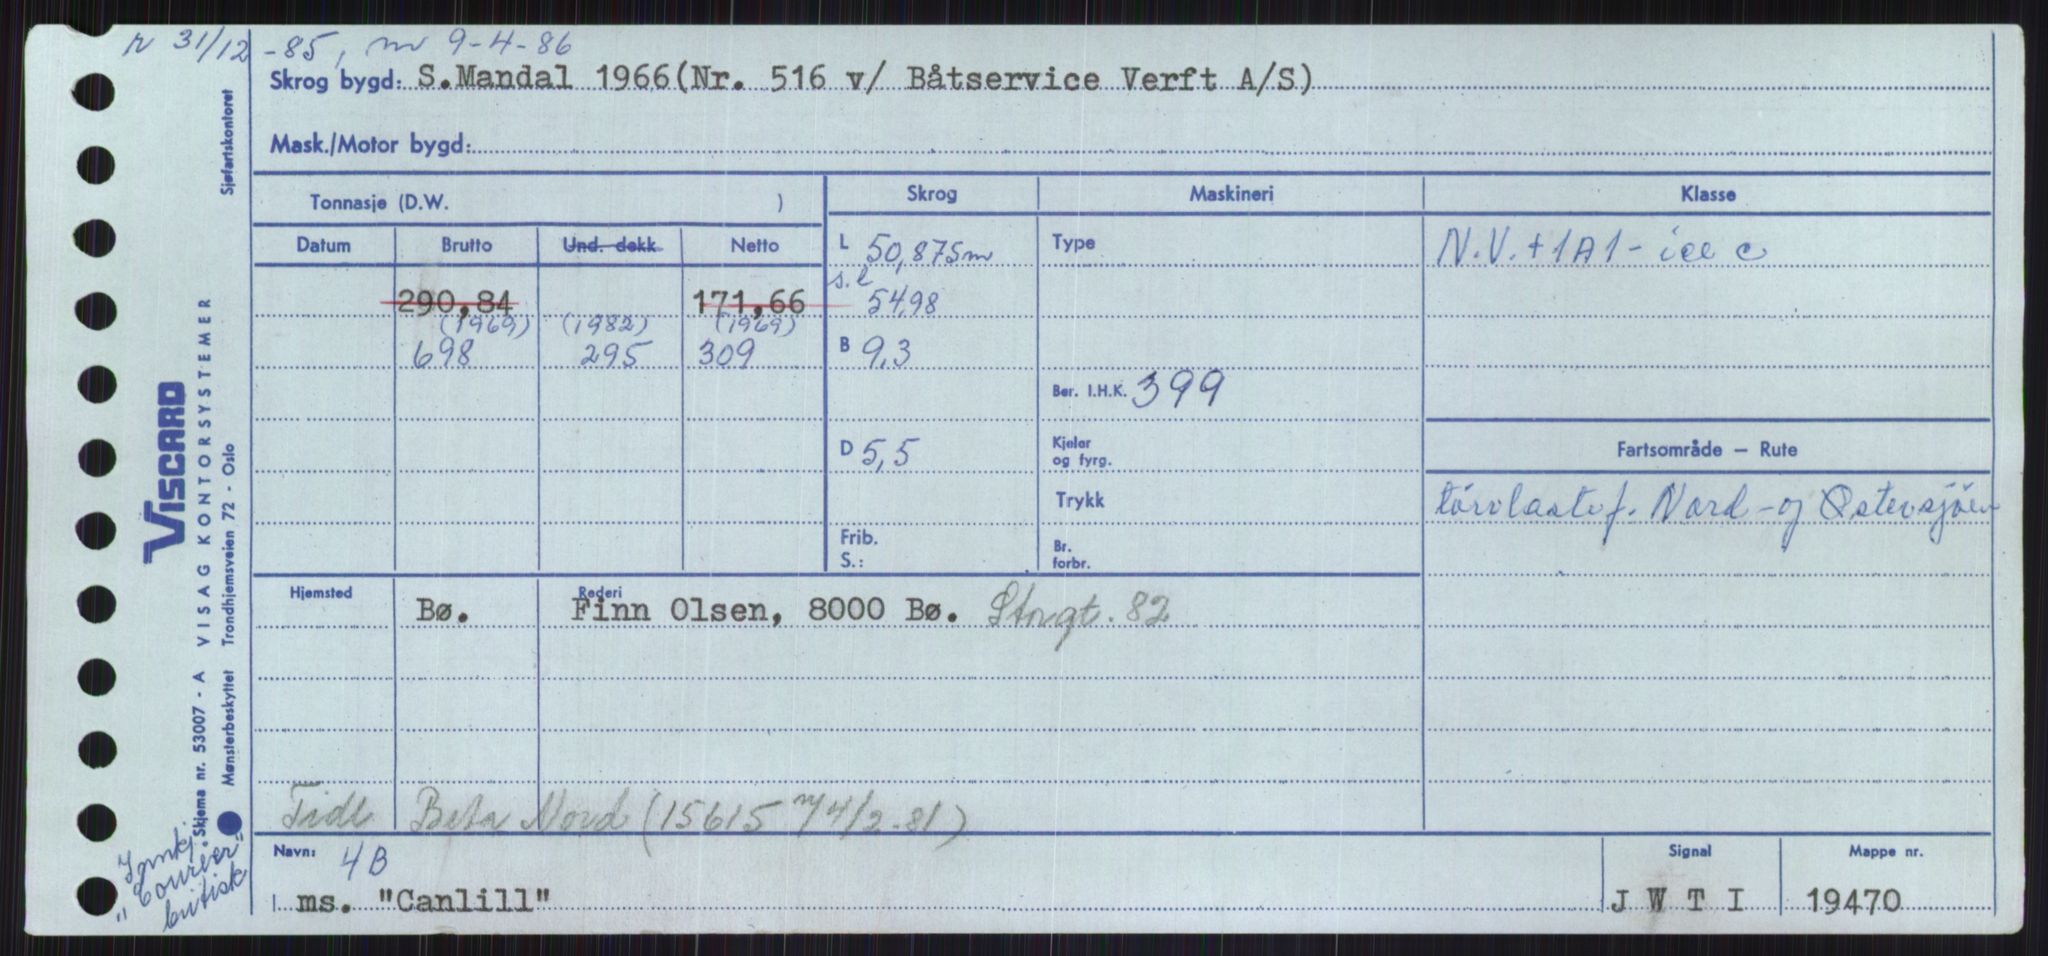 r 31/12 -85, m 9-4-86
Skrog bygd: S.Mandal 1966(Nr. 516 v/ Båtservice Verft A/S)
Mask./Motor bygd:
Tonnasje (D.W. )
Skrog Maskineri Klasse
Datum Brutto Und. dekk Netto
L 50,875m
Type
N.V. + 1A1 - ice c
290,84 171,66
s.l 54,98
(1969) (1982) (1969)
698 295 309
B 9,3
Ber. I.H.K. 399
D 5,5
Kjeler
og fyrg.
Fartsområde – Rute
Trykk
törrlastef. Nord- og Østersjöen
Frib.
S.:
Br.
forbr.
Hjemsted Rederi
Bø. Finn Olsen, 8000 Bø. Storgt. 82
Tidl Beta Nord (15615 m/4/2-81)
Navn: 4B
ms. "Canlill"
Signal
J W T I
Mappe nr.
19470
Sjøfartskontoret
VISCARD
VISAG KONTORSYSTEMER
Skjema nr. 53007 - A
Mønsterbeskyttet Trondhjemsveien 72 - Oslo
"Courier"
britisk